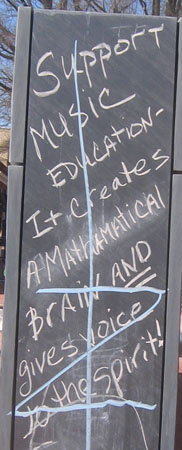 Support
Music
EDUCATION-
It Creates
A MATHEMATICAL
BRAIN AND
gives voice
to the Spirit!